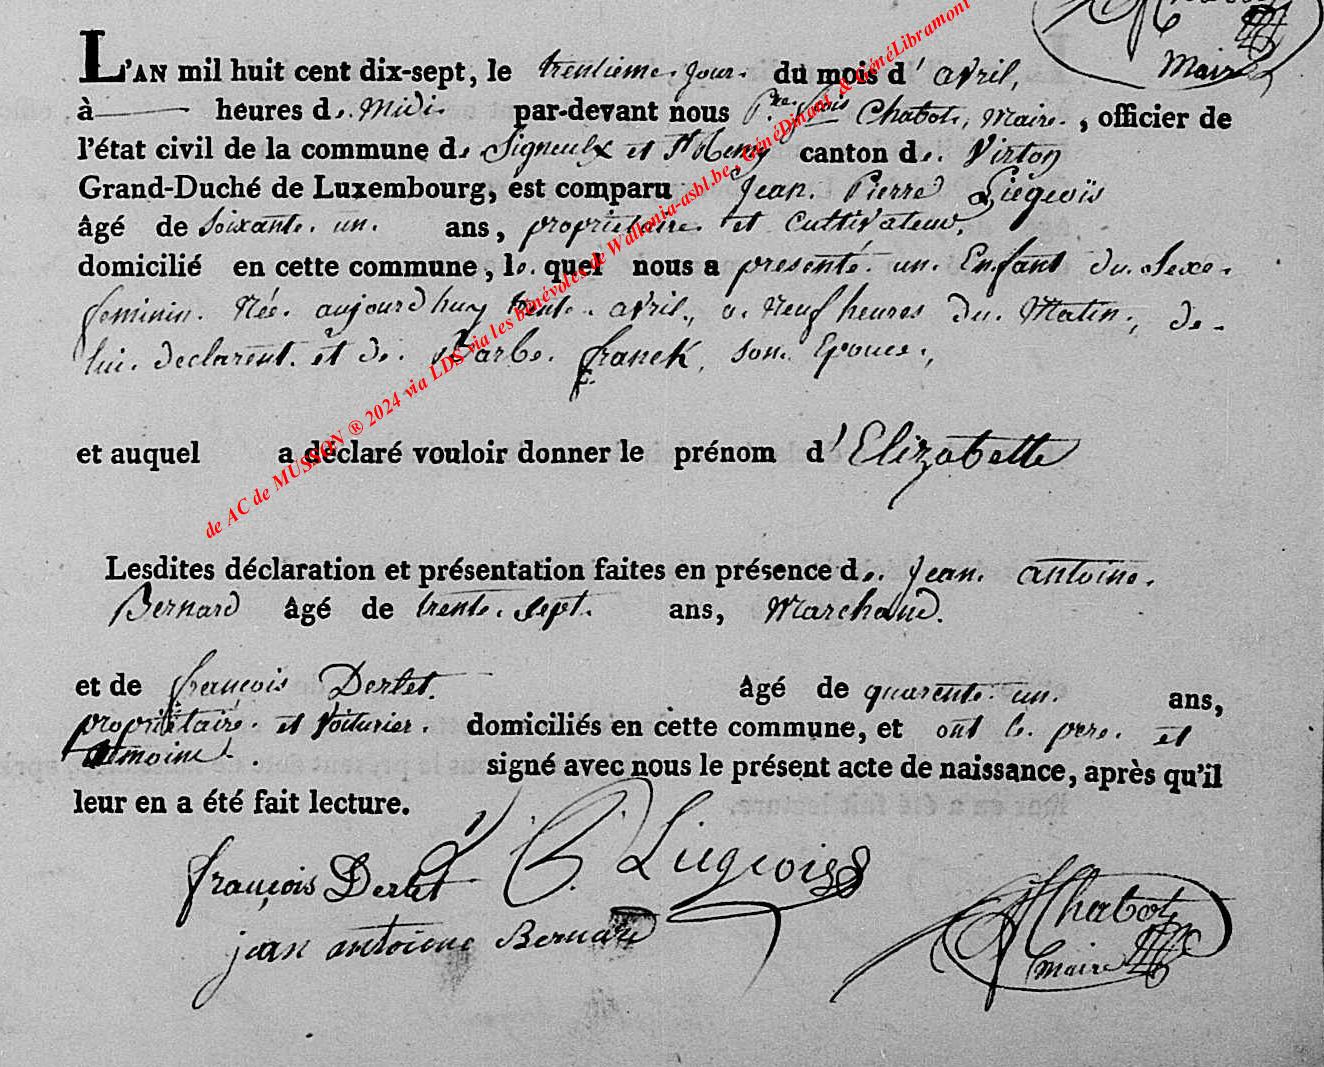 Maire
L'AN mil huit cent dix-sept, le trentieme jour du mois d'avril,
à heures de Midi par-devant nous Pre fois Chabot, Maire, officier de
l'état civil de la commune de Signeulx et St Remy canton de Virton
Grand-Duché de Luxembourg, est comparu Jean Pierre Liégeois
âgé de soixante un ans, propriétaire et Cultivateur,
domicilié en cette commune, le quel nous a presenté un Enfant du Sexe
feminin Née aujourd'huy trente avril, a Neuf heures du Matin, de
lui declarent et de Barbe franck, son Epouce,
et auquel a déclaré vouloir donner le prénom d'Elizabette
Lesdites déclaration et présentation faites en présence de Jean antoine
Bernard âgé de trente sept ans, Marchand.
et de françois Dertet âgé de quarente un ans,
propriétaire et voiturier domiciliés en cette commune, et ont le pere et
temoins signé avec nous le présent acte de naissance, après qu'il
leur en a été fait lecture.
françois Dertet P. Liegeois
jean antoine Bernard
Chabot
maire
de AC de MUSSON ® 2024 via LDS via les bénévoles de Wallonia-asbl.be, GénéDinant & GénéLibramont